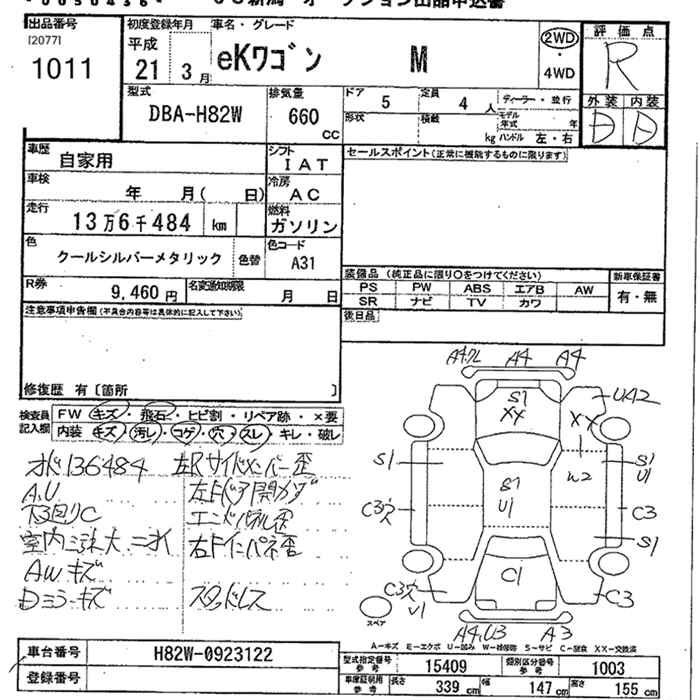 出品番号
1011
初度登録年月
平成
21 3月
車名・グレード
eKワゴン M
2WD
・
4WD
評価点
R
外装 内装
D D
型式
DBA-H82W
排気量
660
CC
ドア 5
定員 4人
ディーラー・並行
形状
積載 kg
モデル年式 年
ハンドル 左・右
車歴
自家用
シフト
IAT
セールスポイント(正常に機能するものに限ります)
車検
年 月( 日)
冷房
AC
走行
13万6千484 km
燃料
ガソリン
色
クールシルバーメタリック
色替
色コード
A31
R券
9,460円
名変通知期限
月 日
装備品(純正品に限り○をつけてください)
PS PW ABS エアB AW
SR ナビ TV カワ
新車保証書
有・無
後日品
注意事項申告欄(不具合内容等は具体的に記入して下さい)
修復歴 有〔箇所 〕
検査員記入欄
FW キズ・飛石・ヒビ割・リペア跡・×要
内装 キズ・汚レ・コゲ・穴・スレ・キレ・破レ
136484 左Rサイドメンバー歪
A.U
下回りC
エンドパネル歪
AWキズ
Dミラーキズ
スタッドレス
A4 A4
S1
XX
U42
XX
S1
W2
S1
U1
S1
U1
C3
C3
S1
C1
C3
U1
C3
スペア
A4.U3 A3
A-キズ E-エクボ U-凹み W-補修跡 S-サビ C-腐食 XX-交換済
車台番号
H82W-0923122
登録番号
型式指定番号
参考
15409
類別区分番号
参考
1003
車庫証明用
参考
長さ 339 cm
幅 147 cm
高さ 155 cm